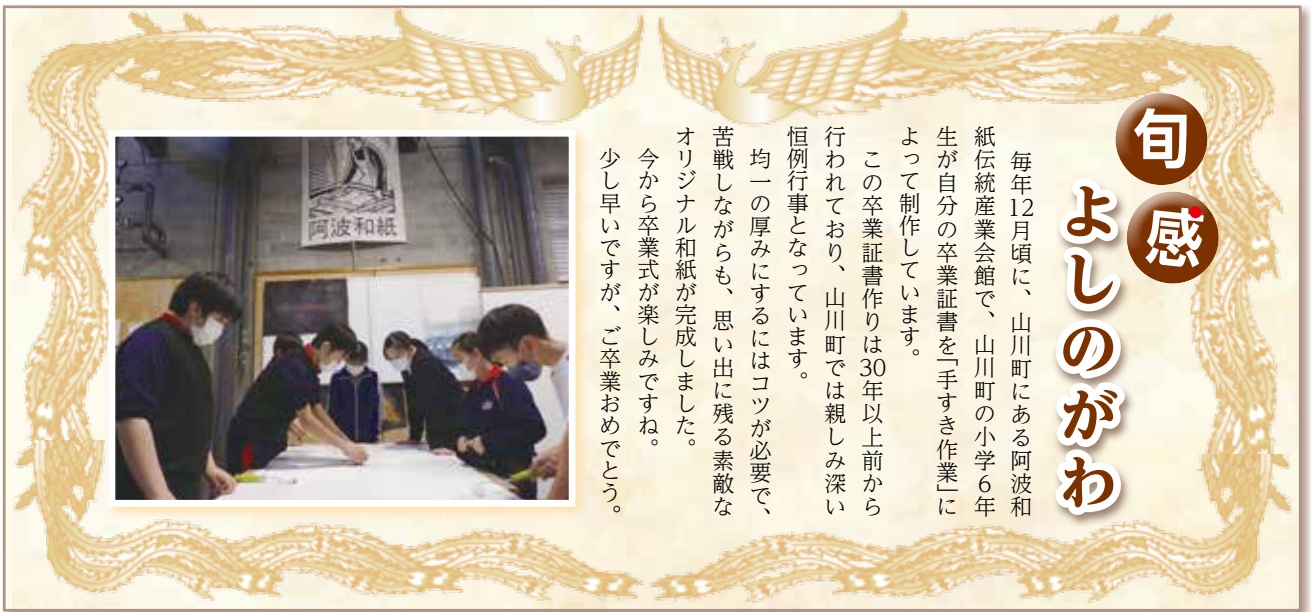 旬感
よしのがわ
毎年12月頃に、山川町にある阿波和
紙伝統産業会館で、山川町の小学6年
生が自分の卒業証書を「手すき作業」に
よって制作しています。
この卒業証書作りは30年以上前から
行われており、山川町では親しみ深い
恒例行事となっています。
均一の厚みにするにはコツが必要で、
苦戦しながらも、思い出に残る素敵な
オリジナル和紙が完成しました。
今から卒業式が楽しみですね。
少し早いですが、ご卒業おめでとう。
阿波和紙